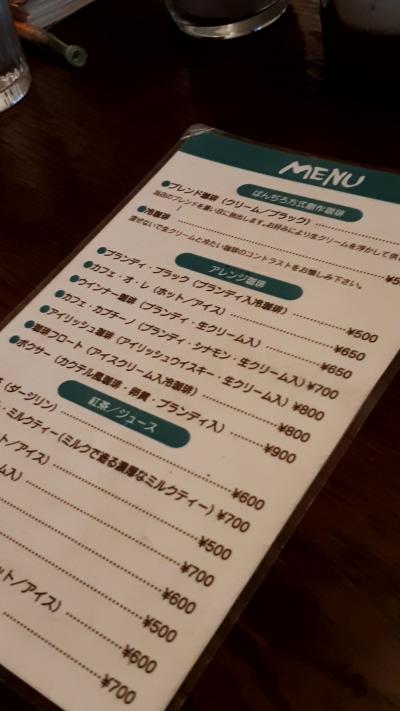 MENU
ばんぢろ方式創作珈琲
●ブレンド珈琲（クリーム／ブラック）
当店のブレンドを濃い目に抽出します。お好みにより生クリームを浮かして
●冷珈琲
混ぜないで生クリームと冷たい珈琲のコントラストをお愉しみ下さい。
アレンジ珈琲
●ブランディ・ブラック（ブランディ入冷珈琲） ¥500
●カフェ・オ・レ（ホット／アイス） ¥650
●ウインナー珈琲（ブランディ・生クリーム入） ¥650
●カフェ・カプチーノ（ブランディ・シナモン・生クリーム入） ¥700
●アイリッシュ珈琲（アイリッシュウイスキー・生クリーム入） ¥800
●珈琲フロート（アイスクリーム入冷珈琲） ¥800
●ボクサー（カクテル風珈琲・卵黄・ブランディ入） ¥900
紅茶／ジュース
（ダージリン） ¥600
・ミルクティー（ミルクで造る濃厚なミルクティー） ¥700
ット／アイス） ¥500
ーム入） ¥700
¥600
¥500
ット／アイス） ¥600
¥700